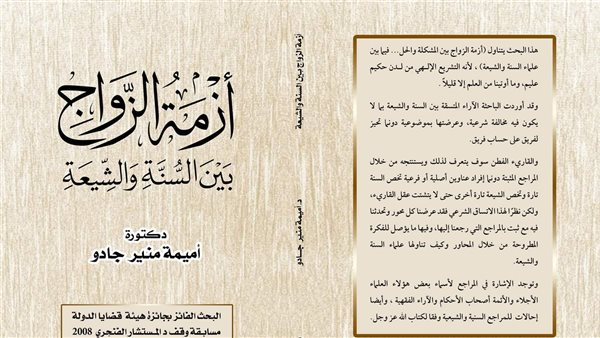 أزمة الزواج
بين السنة والشيعة
دكتورة
أميمة منير جادو
البحث الفائز بجائزة هيئة قضايا الدولة
مسابقة وقف د المستشار الفنجري 2008
أزمة الزواج بين السنة والشيعة
د. أميمة منير جادو
هذا البحث يتناول (أزمة الزواج بين المشكلة والحل... فيما بين
علماء السنة والشيعة) ، لأنه التشريع الإلهي من لدن حكيم
عليم، وما أوتينا من العلم إلا قليلاً .
وقد أوردت الباحثة الآراء المتسقة بين السنة والشيعة بما لا
يكون فيه مخالفة شرعية، وعرضتها بموضوعية دونما تحيز
لفريق على حساب فريق.
والقاريء الفطن سوف يتعرف لذلك ويستنتجه من خلال
المراجع المثبتة دونما إفراد عناوين أصلية أو فرعية تخص السنة
تارة وتخص الشيعة تارة أخرى حتى لا يتشتت عقل القاريء،
ولكن نظرًا لهذا الاتساق الشرعي فقد عرضنا كل محور وتحدثنا
فيه مع ثبت بالمراجع التي رجعنا إليها، وفيها ما يؤصل للفكرة
المطروحة من خلال المحاور وكيف تناولها علماء السنة
والشيعة.
وتوجد الإشارة في المراجع لأسماء بعض هؤلاء العلماء
الأجلاء والأئمة أصحاب الأحكام والآراء الفقهية ، وأيضا
إحالات للمراجع السنية والشيعية وفقا لكتاب الله عز وجل.